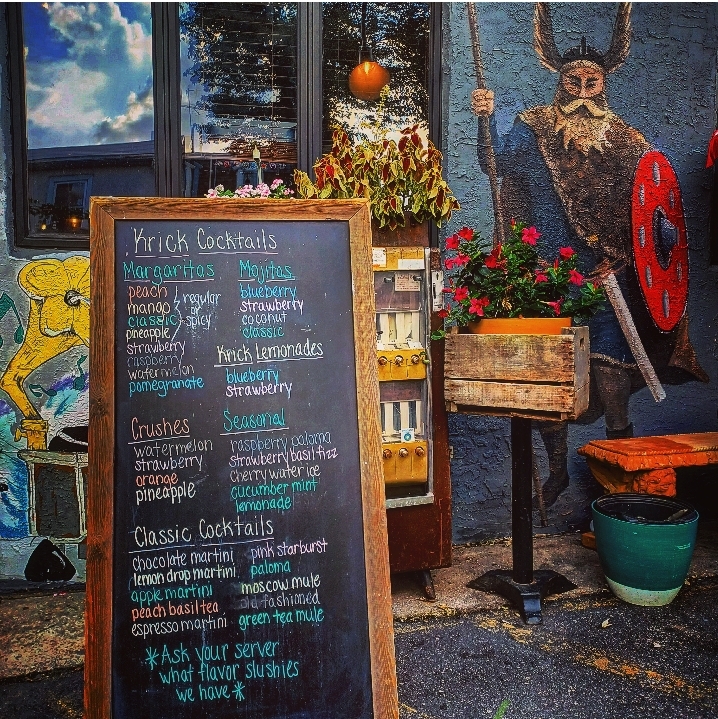 Krick Cocktails
Margaritas
peach
mango
classic
pineapple
strawberry
raspberry
watermelon
pomegranate
regular
or
spicy
Mojitos
blueberry
strawberry
coconut
classic
Krick Lemonades
blueberry
strawberry
Crushes
watermelon
strawberry
orange
pineapple
Seasonal
raspberry paloma
strawberry basil fizz
cherry water ice
cucumber mint
lemonade
Classic Cocktails
chocolate martini
lemon drop martini
apple martini
peach basil tea
espresso martini
pink starburst
paloma
moscow mule
old fashioned
green tea mule
*Ask your server
what flavor slushies
we have*